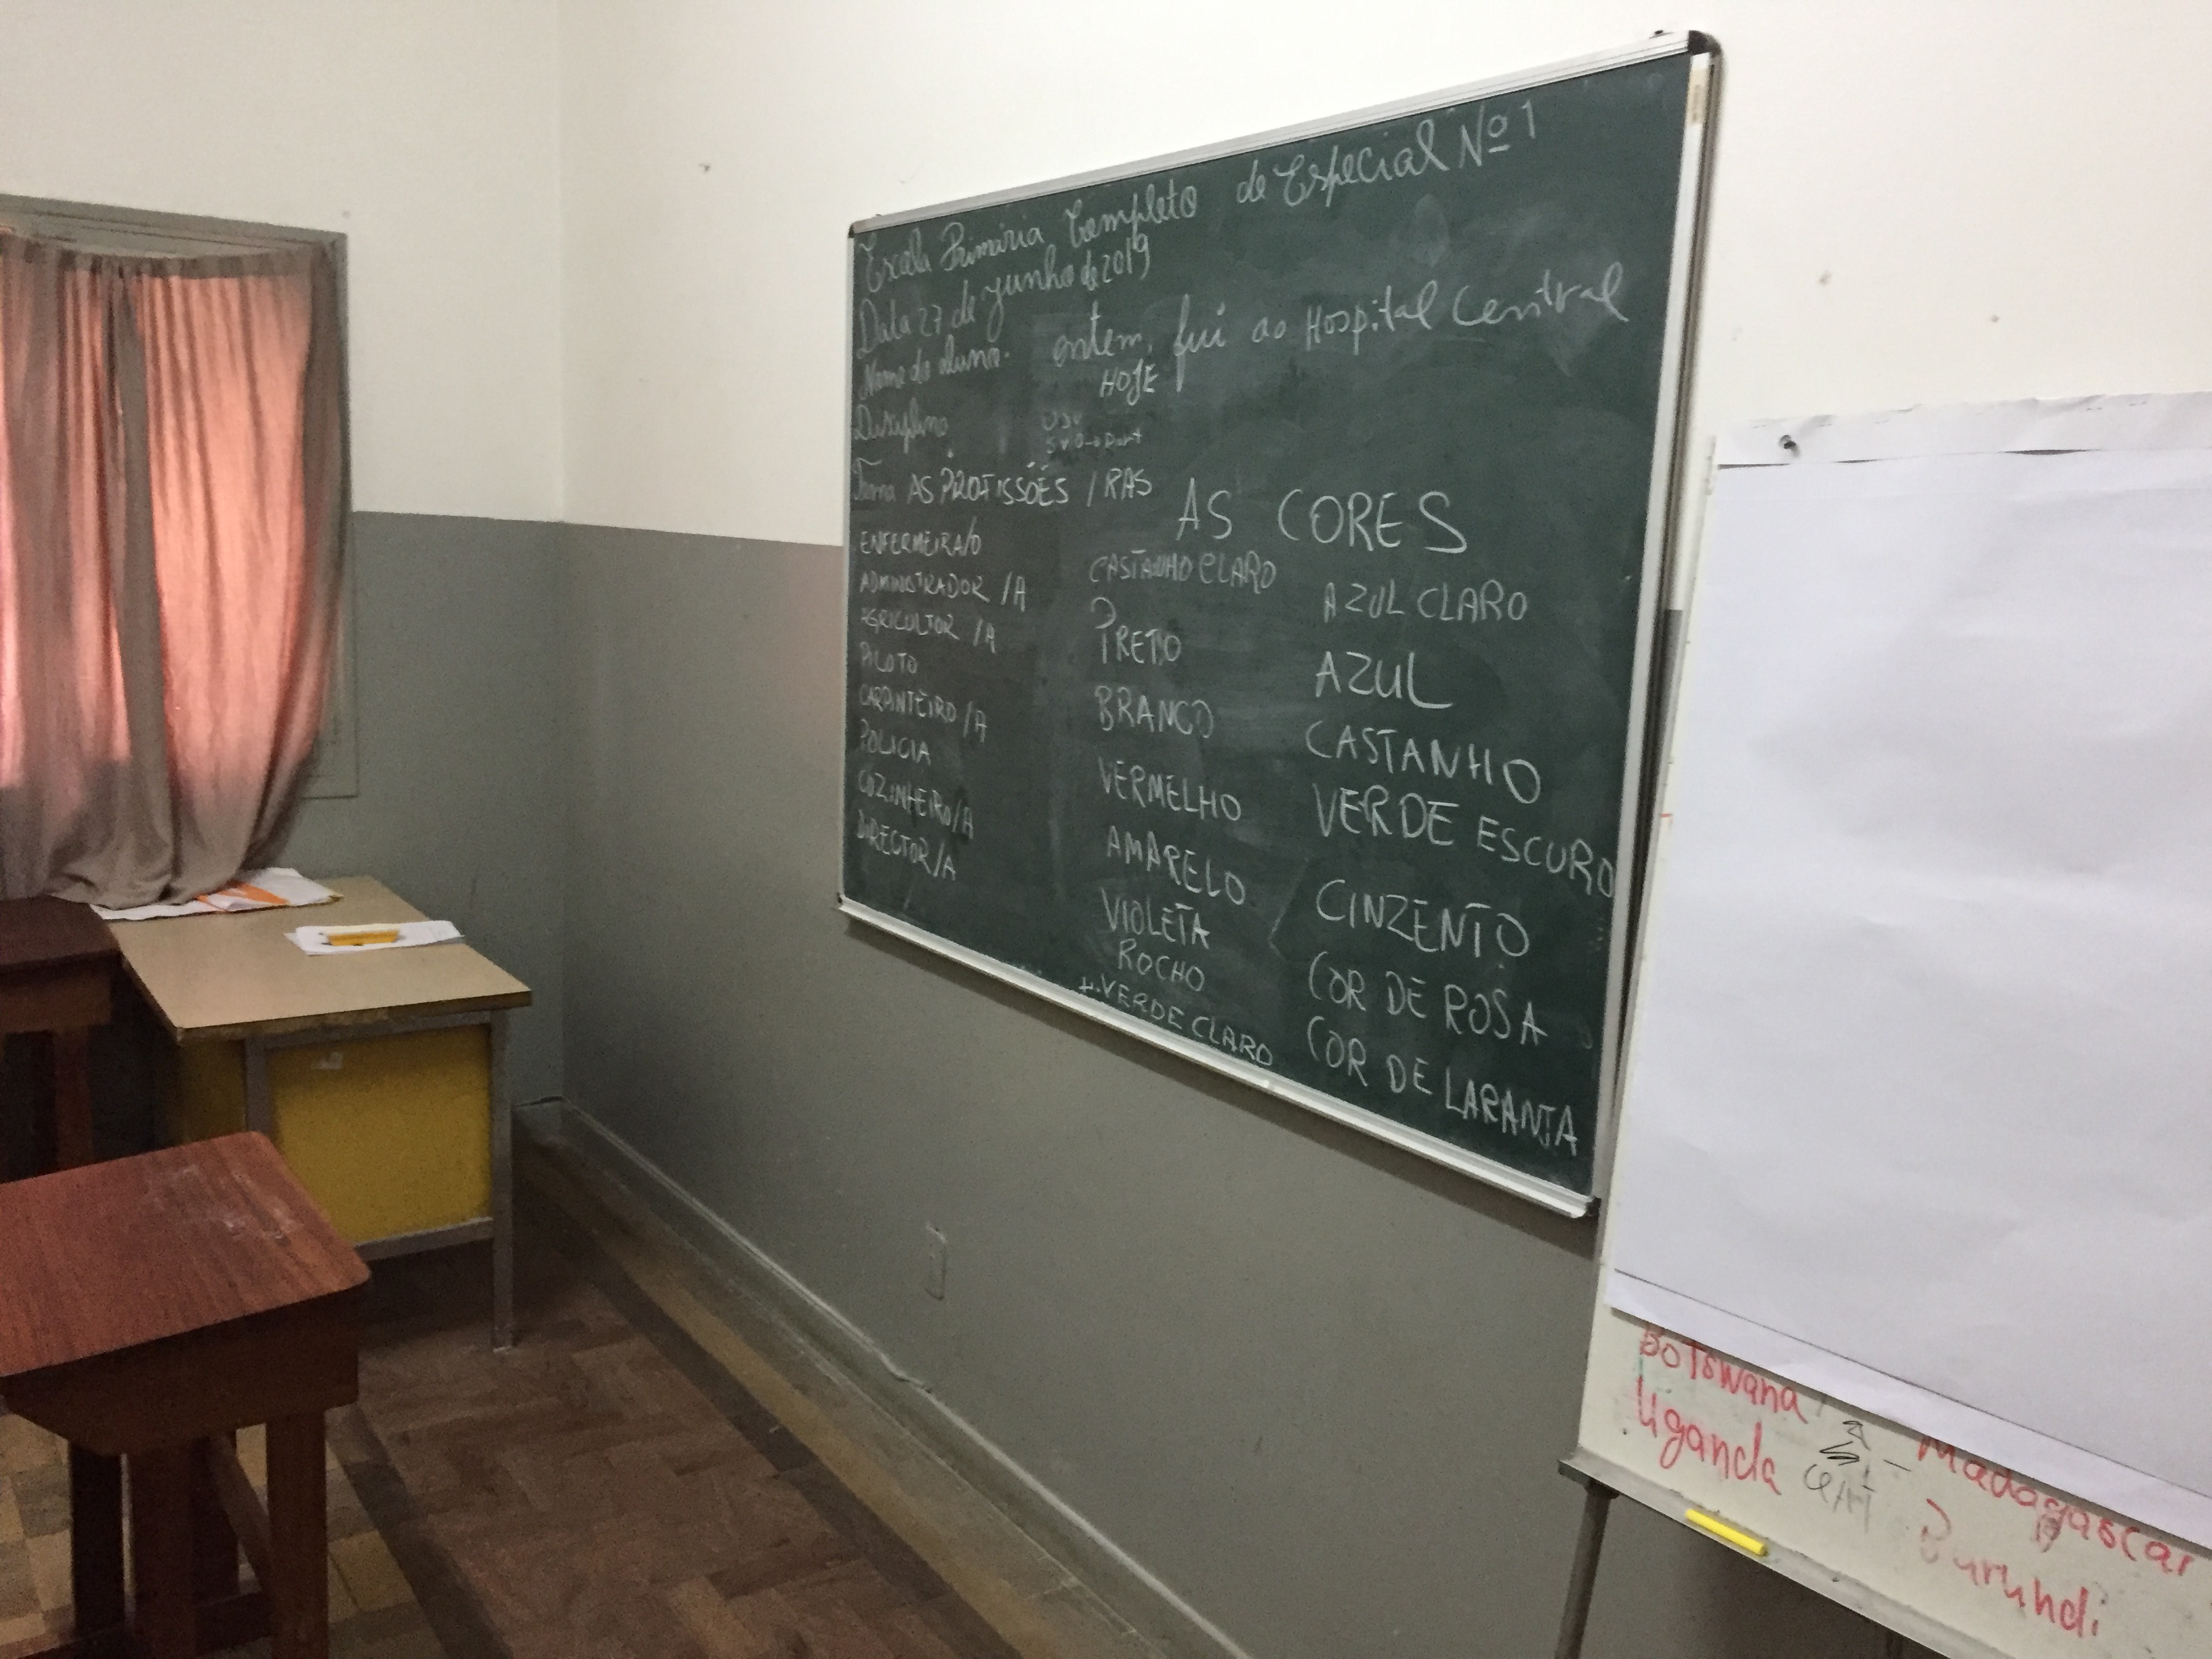 Escola Primária Completo de Especial Nº 1
Data 27 de junho de 2019
Nome do aluno.
ontem, fui ao Hospital Central
HOJE
Disciplina
OSV
SVO → Port
Tema AS PROFISSÕES / RAS
ENFERMEIRA/O
ADMINISTRADOR /A
AGRICULTOR /A
PILOTO
CARPINTEIRO /A
POLICIA
COZINHEIRO/A
DIRECTOR/A
AS CORES
CASTANHO CLARO
PRETO
BRANCO
VERMELHO
AMARELO
VIOLETA
ROCHO
VERDE CLARO
AZUL CLARO
AZUL
CASTANHO
VERDE ESCURO
CINZENTO
COR DE ROSA
COR DE LARANJA
Botswana
Uganda
Madagascar
Burundi